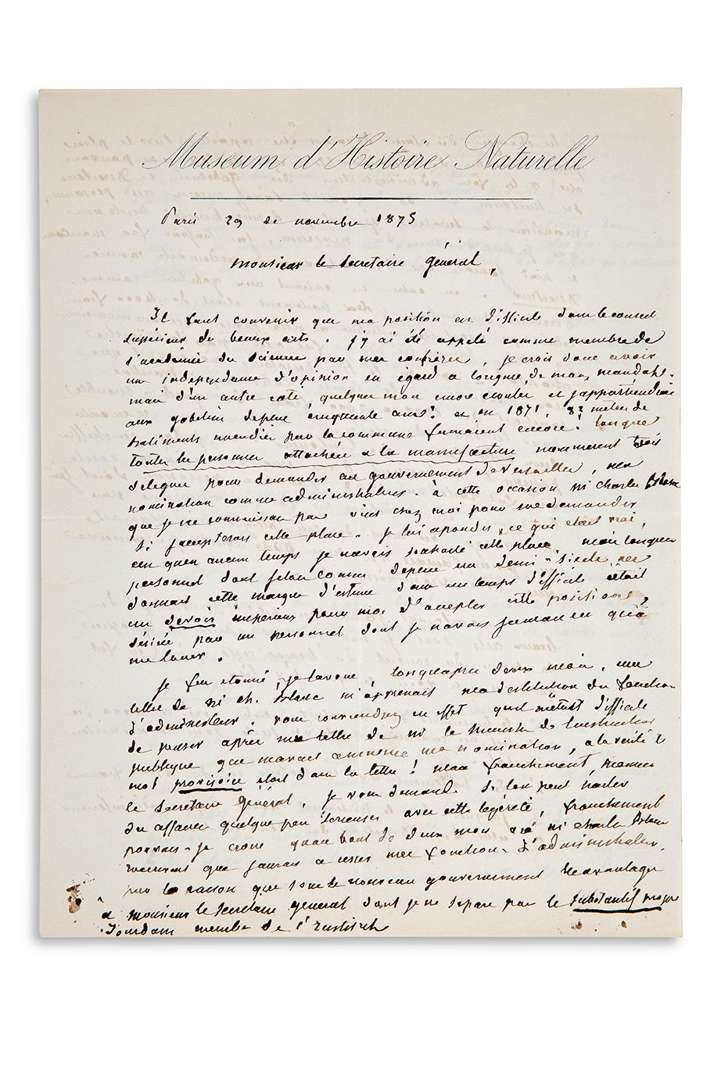 Museum d'Histoire Naturelle
Paris 29 de novembre 1875
Monsieur le Secretaire Général,
Il faut convenir que ma position est difficile dans le conseil
supérieur des beaux arts. j'y ai été appelé comme membre de
l'académie des sciences par mes confrères, je crois donc avoir
un independance d'opinion en égard a l'origine de mon mandat.
mais d'un autre coté, quelque mon
aux gobelins depuis cinquante ans! et en 1871, 82 metres de
batiments incendiés par la commune fumaient encore! lorsque
toutes les personnes attachées a la manufacture nommerent trois
delegués pour demander au gouvernement de versailles, ma
nomination comme administrateur. à cette occasion Mr charles Blanc
que je ne connaissais pas vint chez moi pour me demander
si j'accepterais cette place. je lui repondis, ce qui etait vrai,
en qu'en aucun temps je n'avais souhaité cette place, mais lorsqu'un
personnel dont j'etais connu depuis un demi-siècle, me
donnait cette marque d'estime dans un temps difficile c'était
un devoir imperieux pour moi d'accepter cette position,
désirée par un personnel dont je n'avais jamais eu qu'à
me louer.
je fus etonné, je l'avoue, lorsqu'apres deux mois, une
lettre de Mr ch. Blanc m'apprenait ma destitution des fonctions
d'administrateur. vous comprendrez en effet qu'il m'était difficile
de penser après une lettre de Mr le Ministre de l'instruction
publique que m'avait annoncé ma nomination, a la verité le
mot provisoire etait dans la lettre! mais franchement, Monsieur
le Secretaire Général, je vous demande si l'on peut traiter
des affaires quelque peu serieuses avec cette legereté, franchement
pouvais-je croire qu'au bout de deux mois Mr charles Blanc
que jamais a cesser mes fonctions d'administrateur.
par la raison que sous le nouveau gouvernement
a monsieur le Secretaire general dont je ne separe pas le substantif propre
Jourdain membre de l'Institut